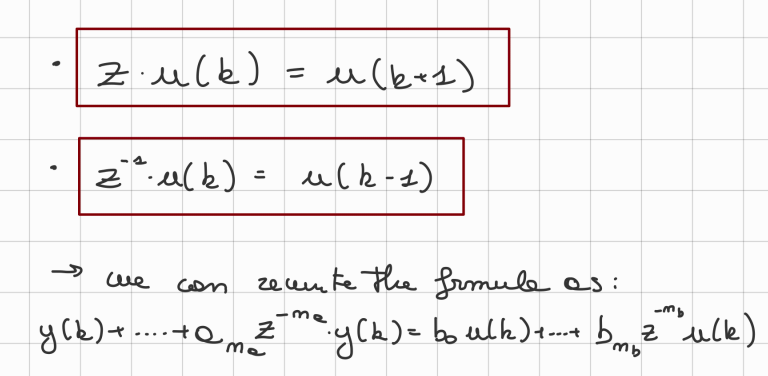 · z · u(k) = u(k+1)
· z⁻¹ · u(k) = u(k-1)
→ we can rewrite the formula as:
y(k) + .... + a_{na} z^{-na} · y(k) = b₀ u(k) + ... + b_{nb} z^{-nb} u(k)